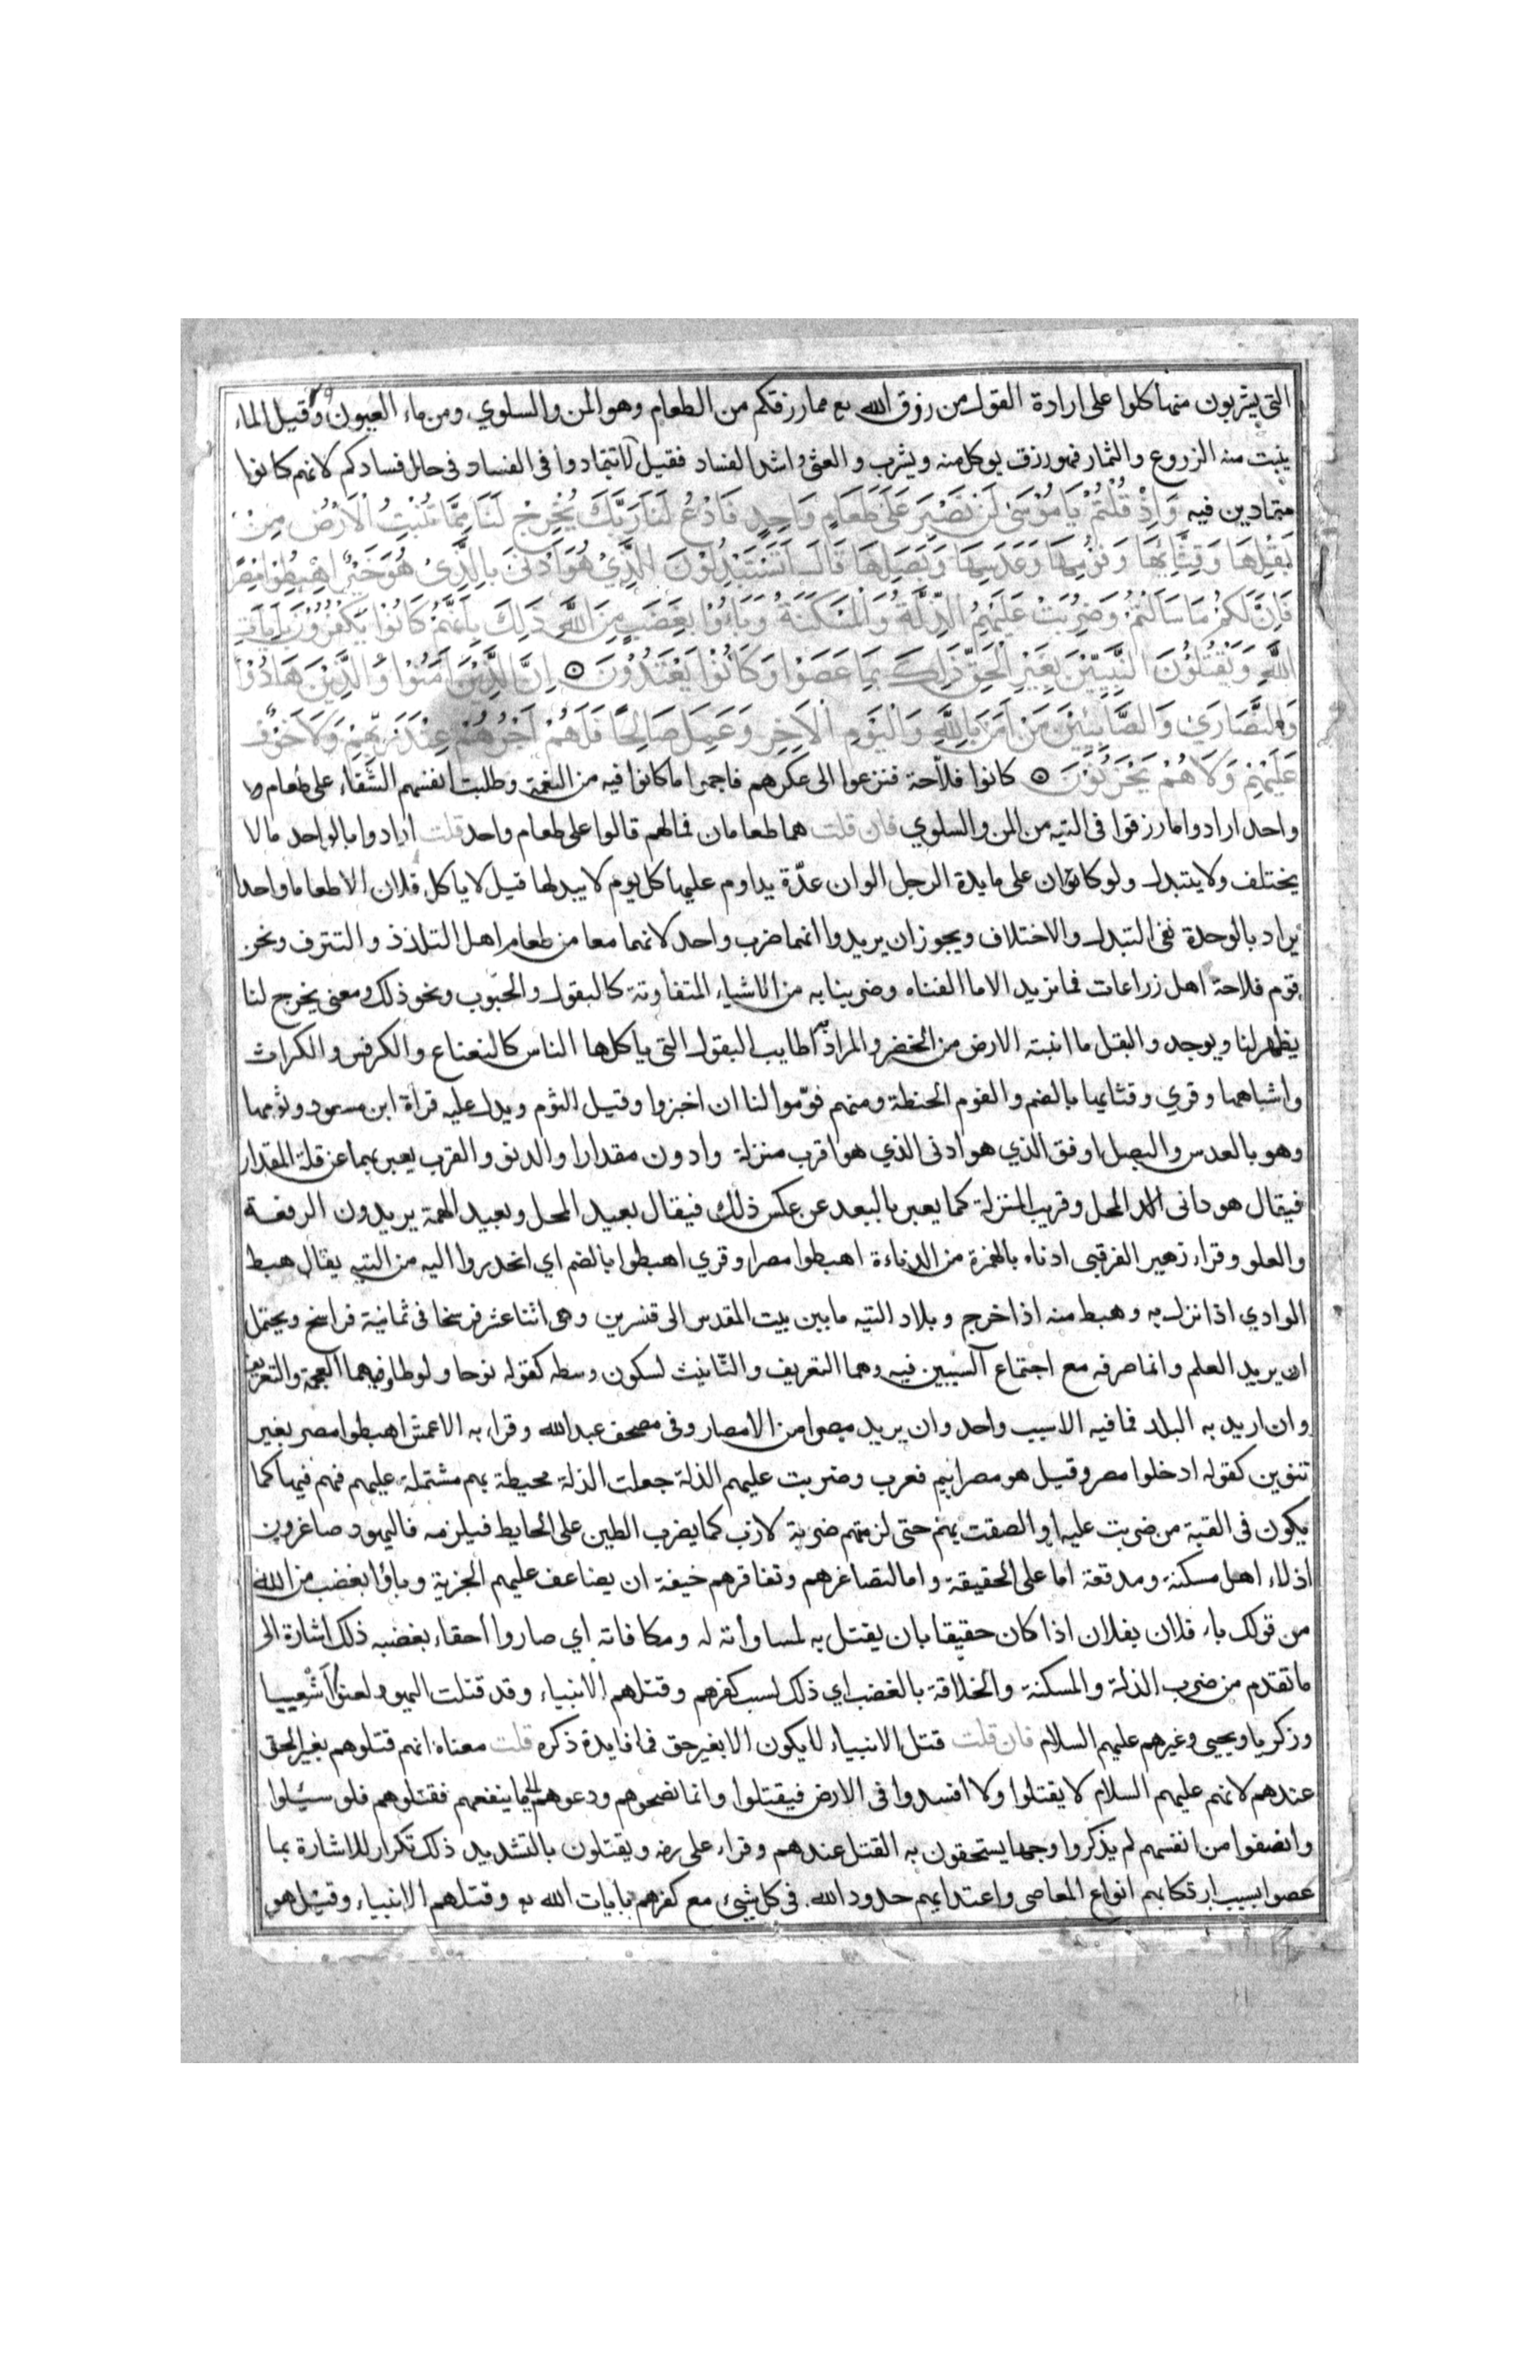 التي يشربون منها كلوا على ارادة القول من رزق الله تع مما رزقكم من الطعام وهو المن والسلوي ومن ماء العيون وقيل الماء
ينبت منه الزروع والثمار فهو رزق يوكل منه ويشرب والعثي اشد الفساد فقيل لا تتمادوا في الفساد في حال فسادكم لانهم كانوا
متمادين فيه وَاِذْ قُلْتُمْ يَا مُوْسَىٰ لَنْ نَصْبِرَ عَلَى طَعَامٍ وَاحِدٍ فَادْعُ لَنَا رَبَّكَ يُخْرِجْ لَنَا مِمَّا تُنْبِتُ الْاَرْضُ مِنْ
بَقْلِهَا وَقِثَّائِهَا وَفُوْمِهَا وَعَدَسِهَا وَبَصَلِهَا قَالَ اَتَسْتَبْدِلُوْنَ الَّذِيْ هُوَ اَدْنَى بِالَّذِيْ هُوَ خَيْرٌ اِهْبِطُوْا مِصْرًا
فَاِنَّ لَكُمْ مَا سَاَلْتُمْ وَضُرِبَتْ عَلَيْهِمُ الذِّلَّةُ وَالْمَسْكَنَةُ وَبَاءُوْا بِغَضَبٍ مِنَ اللَّهِ ذَلِكَ بِاَنَّهُمْ كَانُوْا يَكْفُرُوْنَ بِاَيَاتِ
اللَّهِ وَيَقْتُلُوْنَ النَّبِيِّيْنَ بِغَيْرِ الْحَقِّ ذَلِكَ بِمَا عَصَوْا وَكَانُوْا يَعْتَدُوْنَ ۝ اِنَّ الَّذِيْنَ اَمَنُوْا وَالَّذِيْنَ هَادُوْا
وَالنَّصَارَي وَالصَّابِئِيْنَ مَنْ اَمَنَ بِاللَّهِ وَالْيَوْمِ الْاَخِرِ وَعَمِلَ صَالِحًا فَلَهُمْ اَجْرُهُمْ عِنْدَ رَبِّهِمْ وَلَا خَوْفٌ
عَلَيْهِمْ وَلَا هُمْ يَحْزَنُوْنَ ۝ كانوا فلاحة فنزعوا الى عكرهم فاجموا ما كانوا فيه من النعمة وطلبت انفسهم الشقاء على طعام
واحد ارادوا ما رزقوا في التيه من المن والسلوي فان قلت هما طعامان فمالهم قالوا على طعام واحد قلت ارادوا بالواحد ما لا
يختلف ولا يتبدل ولو كان على مايدة الرجل الوان عدّة يداوم عليها كل يوم لا يبدلها قيل لا ياكل فلان الا طعاما واحدا
يراد بالوحدة نفي التبدل والاختلاف ويجوز ان يريدوا انهما ضرب واحد لانهما معا من طعام اهل التلذذ والتترف ونحن
قوم فلاحة اهل زراعات فما نزيد الا ما الفناه وضرينا به من الاشياء المتفاوتة كالبقول والحبوب ونحو ذلك ومعنى يخرج لنا
يظهر لنا ويوجد والبقل ما انبته الارض من الخضر والمراد به اطايب البقول التي ياكلها الناس كالنعناع والكرفس والكراث
واشباهها وقري وقثائها بالضم والفوم الحنطة ومنهم فوّموا لنا ان اخبزوا وقيل الثوم ويدل عليه قراة ابن مسعود وثومها
وهو بالعدس والبصل اوفق الذي هو ادنى الذي هو اقرب منزلة وادون مقدارا والدنو والقرب يعبر بهما عن قلة المقدار
فيقال هو داني المحل وقريب المنزلة كما يعبر بالبعد عن عكس ذلك فيقال بعيد المحل وبعيد الهمة يريدون الرفعة
والعلو وقراء زهير الفرقبي ادناء بالهمزة من الدناءة اهبطوا مصرا وقري اهبطوا بالضم اي انحدروا اليه من التيه يقال هبط
الوادي اذا نزل به وهبط منه اذا خرج وبلاد التيه ما بين بيت المقدس الى قنسرين وهى اثنا عشر فرسخا في ثمانية فراسخ ويحتمل
ان يريد العلم وانما صرفه مع اجتماع السببين فيه وهما التعريف والتانيث لسكون وسطه كقوله نوحا ولوطا وفيهما العجمة والتعريف
وان اريد به البلد فما فيه الا سبب واحد وان يريد مصرا من الامصار وفي مصحف عبد الله وقراء به الاعمش اهبطوا مصر بغير
تنوين كقوله ادخلوا مصر وقيل هو مصرائيم فعرب وضربت عليهم الذلة جعلت الذلة محيطة بهم مشتملة عليهم فهم فيها كما
يكون في القبة من ضربت عليه او الصقت بهم حتى لزمتهم ضربة لازب كما يضرب الطين على الحايط فيلزمه فاليهود صاغرون
اذلاء اهل مسكنة ومدقعة اما على الحقيقة واما لتصاغرهم وتفاقرهم خيفة ان يضاعف عليهم الجزية وباؤا بغضب من الله
من قولك باء فلان بفلان اذا كان حقيقا بان يقتل به لمساوأته له ومكافاته اي صاروا أحقاء بغضبه ذلك اشارة الى
ما تقدم من ضرب الذلة والمسكنة والخلاقة بالغضب اي ذلك بسبب كفرهم وقتلهم الانبياء وقد قتلت اليهود لعنوا اَشْعِيا
وزكريا ويحيى وغيرهم عليهم السلام فان قلت قتل الانبياء لا يكون الا بغير حق فما فايدة ذكره قلت معناه انهم قتلوهم بغير الحق
عندهم لانهم عليهم السلام لا يقتلوا ولا أفسدوا في الارض فيقتلوا وانما نصحوهم ودعوهم الى ما ينفعهم فقتلوهم فلو سئلوا
وانصفوا من انفسهم لم يذكروا وجها يستحقون به القتل عندهم وقراء على رضه ويقتلون بالتشديد ذلك تكرار للاشارة بما
عصوا بسبب ارتكابهم انواع المعاصى واعتدايهم حدود الله في كل شيئ مع كفرهم بايات الله تع وقتلهم الانبياء وقيل هو